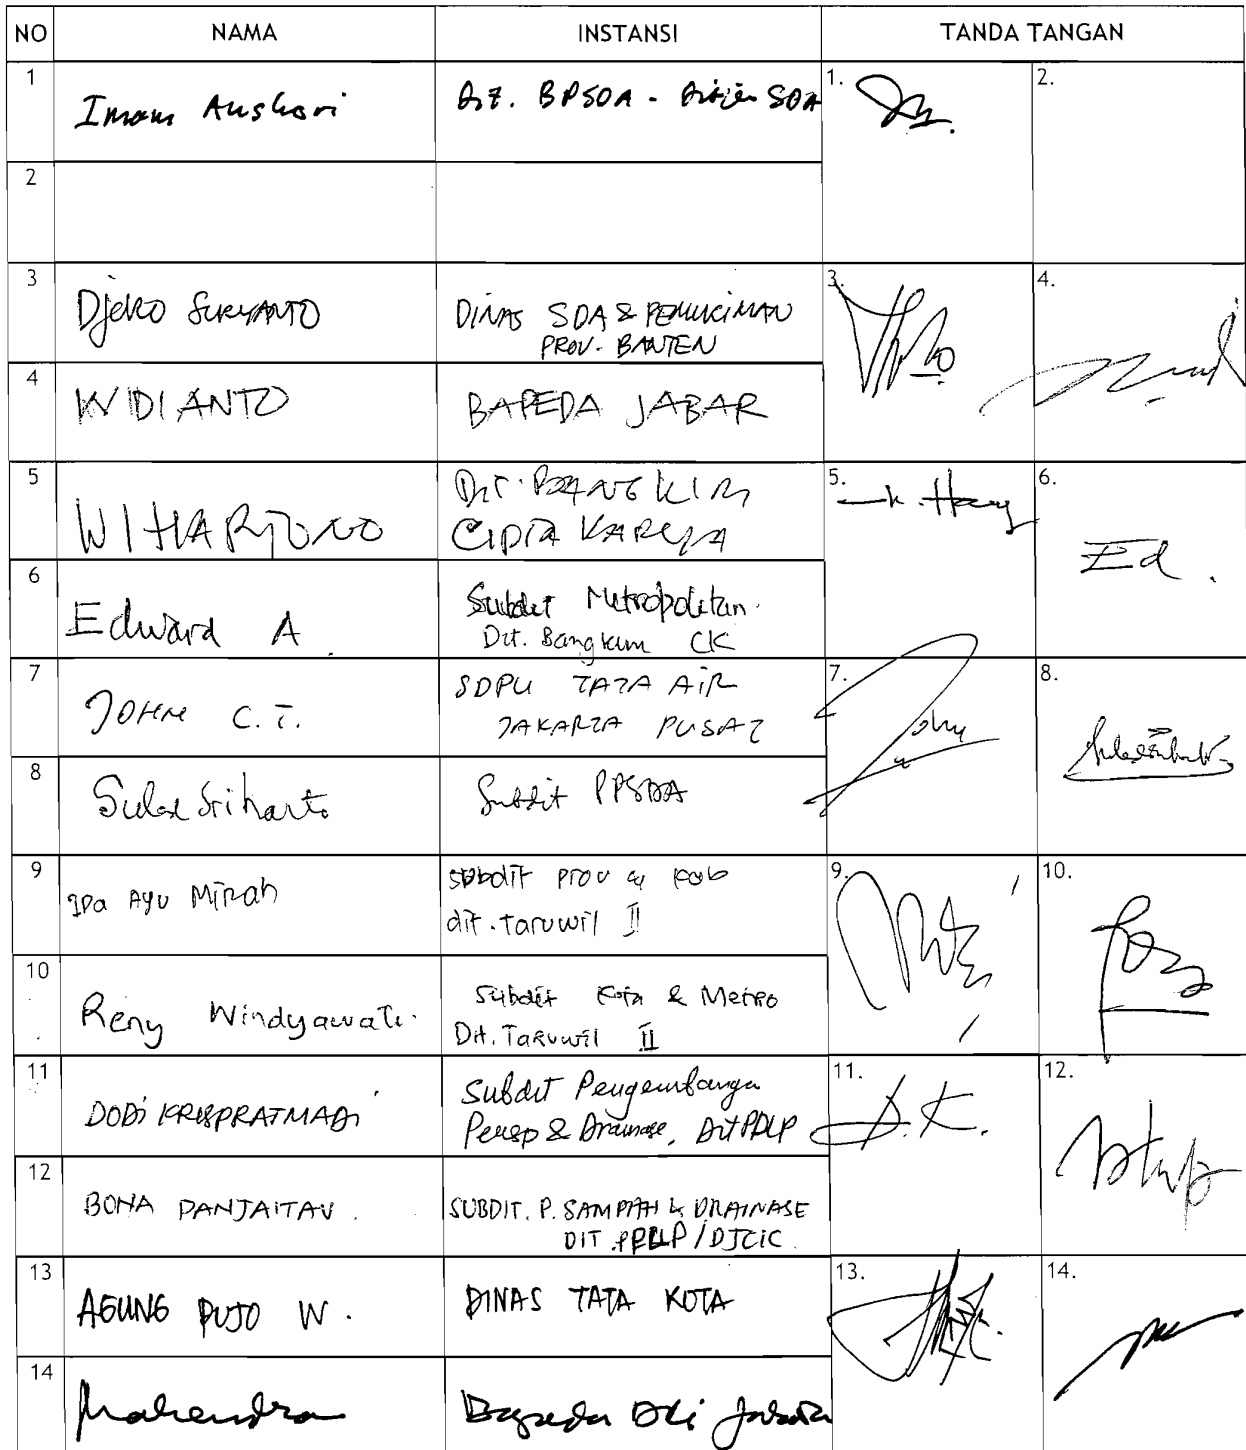 NO NAMA INSTANSI TANDA TANGAN
1 Imam Anshori Dit. BPSDA - Ditjen SDA 1. 2.
2
3 Djoko Suryanto DINAS SDA & PEMUKIMAN 3. 4.
PROV. BANTEN
4 WIDIANTO BAPEDA JABAR
5 WIHARJONO DIT. BANGKIM 5. 6.
CIPTA KARYA
Ed.
6 Edward A. Subdit Metropolitan.
Dit. Bangkim CK
7 JOHN C.T. SDPU TATA AIR 7. 8.
JAKARTA PUSAT
John
8 Sulad Sriharto Subdit PPSDA
9 Ida Ayu Mirah subdit prov & kab 9. 10.
dit. taruwil II
10 Reny Windyawati. Subdit Kota & Metro
Dit. Taruwil II
11 DODI KRISPRATMADI Subdit Pengembangan 11. 12.
Persp & Drainase, Dit PPLP
D.K.
12 BONA PANJAITAN. SUBDIT. P. SAMPAH & DRAINASE
DIT. PPLP/DJCK
13 AGUNG PUJO W. DINAS TATA KOTA 13. 14.
14 Mahendra Bapeda DKI Jakarta